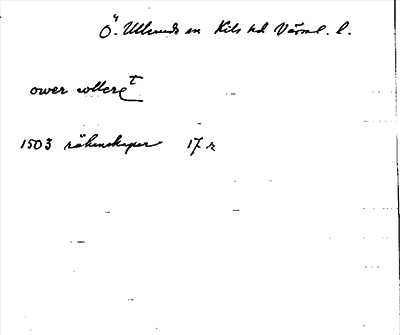 Ö. Ulleruds sn Kils hd Värml. l.
ower wllere t
1503 räkenskaper 17 r